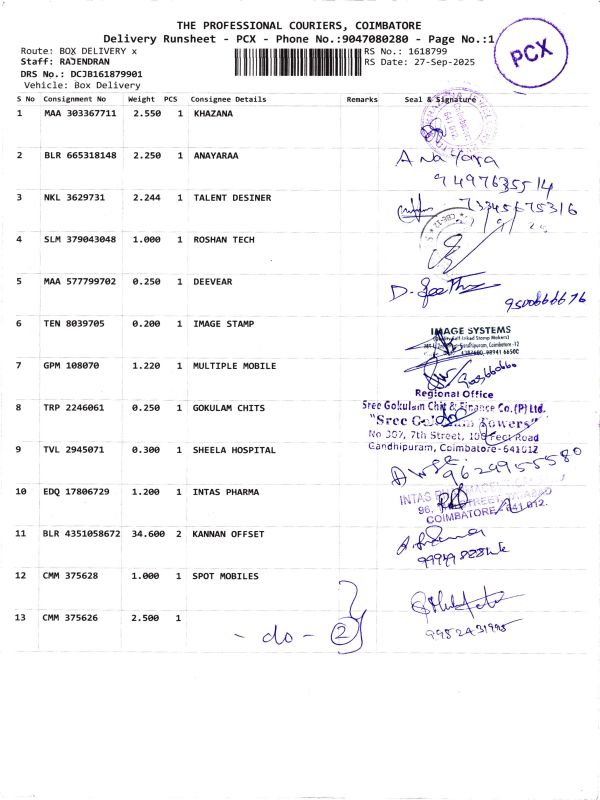 THE PROFESSIONAL COURIERS, COIMBATORE
Delivery Runsheet - PCX - Phone No.:9047080280 - Page No.:1
PCX
Route: BOX DELIVERY x
RS No.: 1618799
Staff: RAJENDRAN
RS Date: 27-Sep-2025
DRS No.: DCJB161879901
Vehicle: Box Delivery
S No Consignment No Weight PCS Consignee Details Remarks Seal & Signature
1 MAA 303367711 2.550 1 KHAZANA
2 BLR 665318148 2.250 1 ANAYARAA
Anayara
9497635514
3 NKL 3629731 2.244 1 TALENT DESINER
4 SLM 379043048 1.000 1 ROSHAN TECH
5 MAA 577799702 0.250 1 DEEVEAR
D.
6 TEN 8039705 0.200 1 IMAGE STAMP
IMAGE SYSTEMS
7 GPM 108070 1.220 1 MULTIPLE MOBILE
Regional Office
8 TRP 2246061 0.250 1 GOKULAM CHITS
Sree Gokulam Chit & Finance Co.(P) Ltd.
"Sree Gokulam Towers"
No 307, 7th Street, 100 Feet Road
Gandhipuram, Coimbatore-641012
9 TVL 2945071 0.300 1 SHEELA HOSPITAL
9629955580
10 EDQ 17806729 1.200 1 INTAS PHARMA
INTAS
COIMBATORE - 641 012.
11 BLR 4351058672 34.600 2 KANNAN OFFSET
12 CMM 375628 1.000 1 SPOT MOBILES
13 CMM 375626 2.500 1
- do - 2